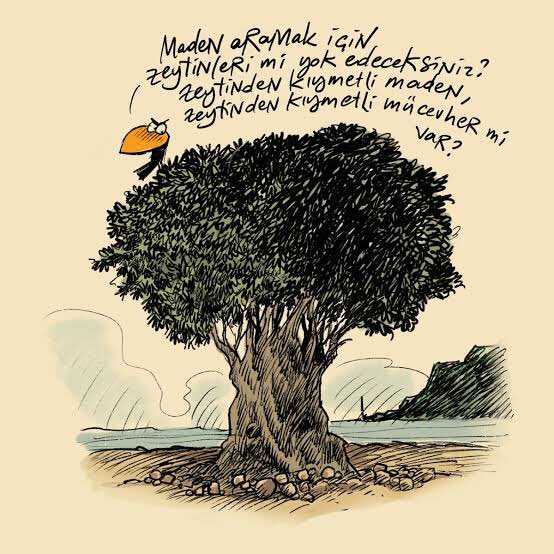 Maden aramak için
zeytinleri mi yok edeceksiniz?
zeytinden kıymetli maden,
zeytinden kıymetli mücevher mi
var?